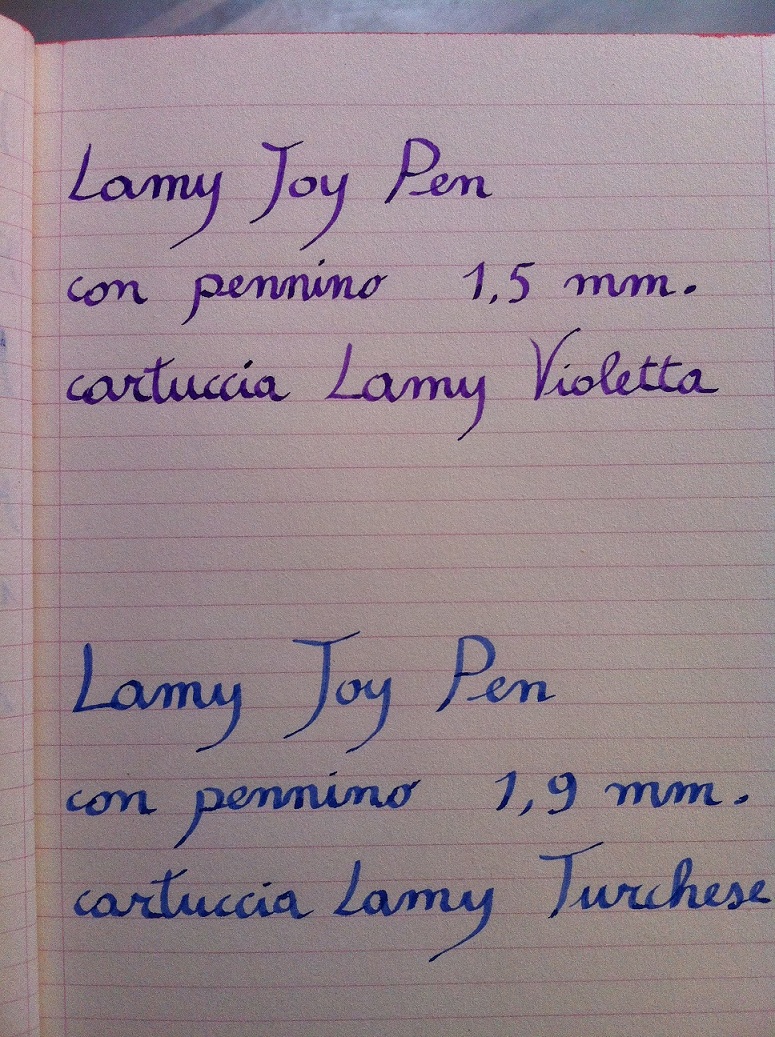 Lamy Joy Pen
con pennino 1,5 mm.
cartuccia Lamy Violetta
Lamy Joy Pen
con pennino 1,9 mm.
cartuccia Lamy Turchese